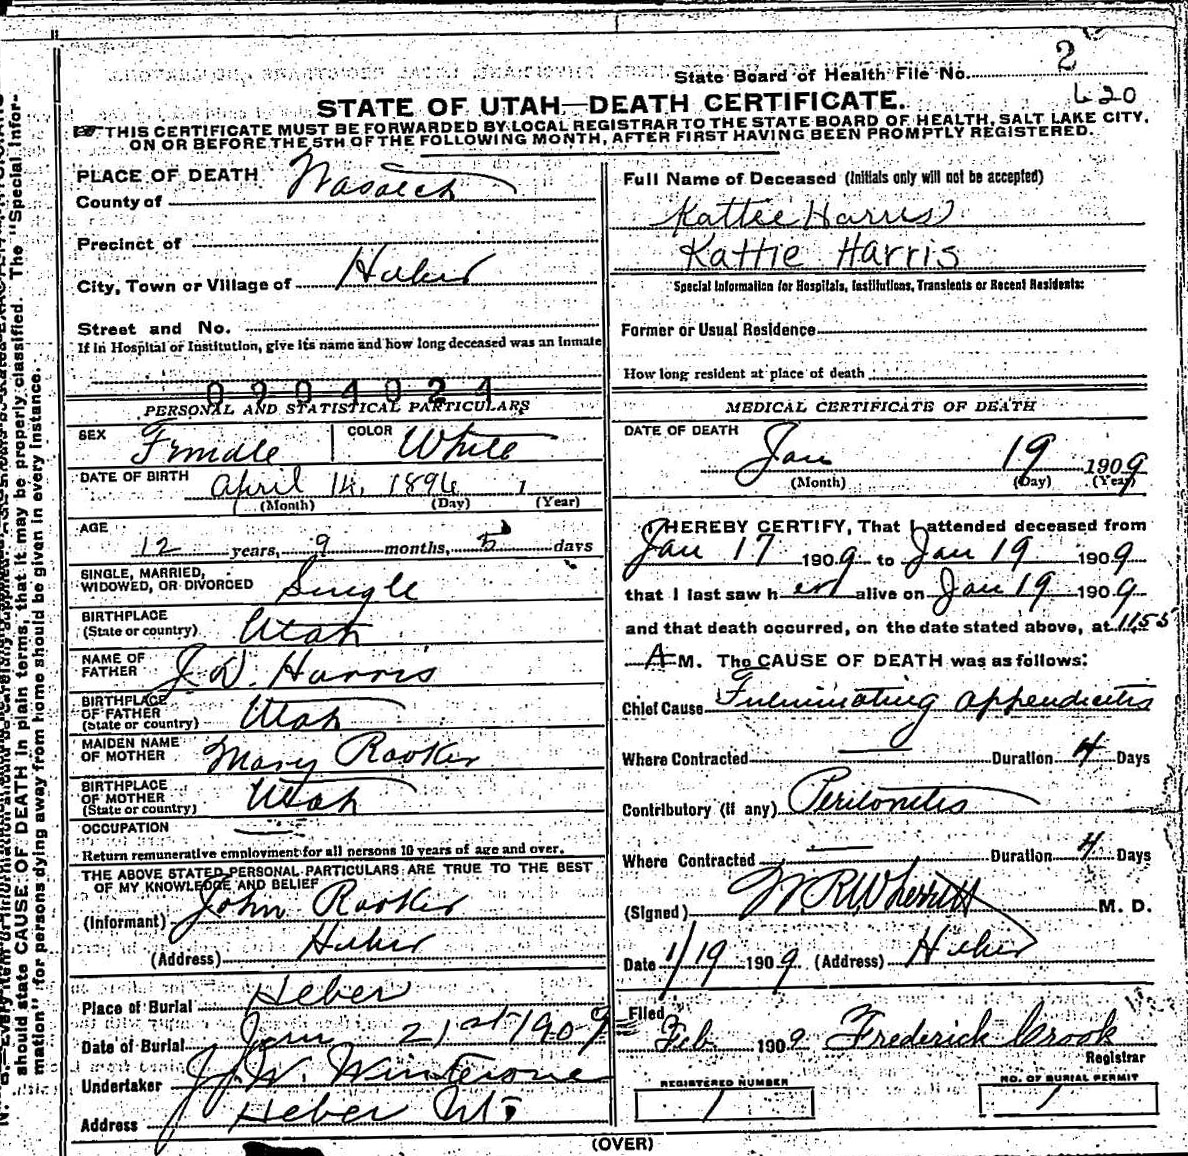 2
State Board of Health File No.
620
STATE OF UTAH—DEATH CERTIFICATE.
THIS CERTIFICATE MUST BE FORWARDED BY LOCAL REGISTRAR TO THE STATE BOARD OF HEALTH, SALT LAKE CITY,
ON OR BEFORE THE 5TH OF THE FOLLOWING MONTH, AFTER FIRST HAVING BEEN PROMPTLY REGISTERED.
PLACE OF DEATH
County of Wasatch
Precinct of
City, Town or Village of Heber
Street and No.
If in Hospital or Institution, give its name and how long deceased was an inmate
0904024
PERSONAL AND STATISTICAL PARTICULARS
SEX Female COLOR White
DATE OF BIRTH April 14, 1896
(Month) (Day) (Year)
AGE
12 years, 9 months, 5 days
SINGLE, MARRIED,
WIDOWED, OR DIVORCED Single
BIRTHPLACE
(State or country) Utah
NAME OF
FATHER J. W. Harris
BIRTHPLACE
OF FATHER
(State or country) Utah
MAIDEN NAME
OF MOTHER Mary Rooker
BIRTHPLACE
OF MOTHER
(State or country) Utah
OCCUPATION
Return remunerative employment for all persons 10 years of age and over.
THE ABOVE STATED PERSONAL PARTICULARS ARE TRUE TO THE BEST
OF MY KNOWLEDGE AND BELIEF
(Informant) John Rooker
(Address) Heber
Place of Burial Heber
Date of Burial Jan 21st 1909
Undertaker J. W. Winterose
Address Heber Ut.
Full Name of Deceased (Initials only will not be accepted)
Kattie Harris
Kattie Harris
Special Information for Hospitals, Institutions, Transients or Recent Residents:
Former or Usual Residence
How long resident at place of death
MEDICAL CERTIFICATE OF DEATH
DATE OF DEATH
Jan 19 1909
(Month) (Day) (Year)
I HEREBY CERTIFY, That I attended deceased from
Jan 17 1909 to Jan 19 1909
that I last saw her alive on Jan 19 1909
and that death occurred, on the date stated above, at 11.55
A M. The CAUSE OF DEATH was as follows:
Chief Cause Fulminating appendicitis
Where Contracted — Duration 4 Days
Contributory (if any) Peritonitis
Where Contracted — Duration 4 Days
(Signed) W. R. Wherritt M. D.
Date 1/19 1909 (Address) Heber
Filed
Feb 1909 Frederick Crook
Registrar
REGISTERED NUMBER
1
NO. OF BURIAL PERMIT
1
(OVER)
should state CAUSE OF DEATH in plain terms, that it may be properly classified. The "Special Infor-
mation" for persons dying away from home should be given in every instance.